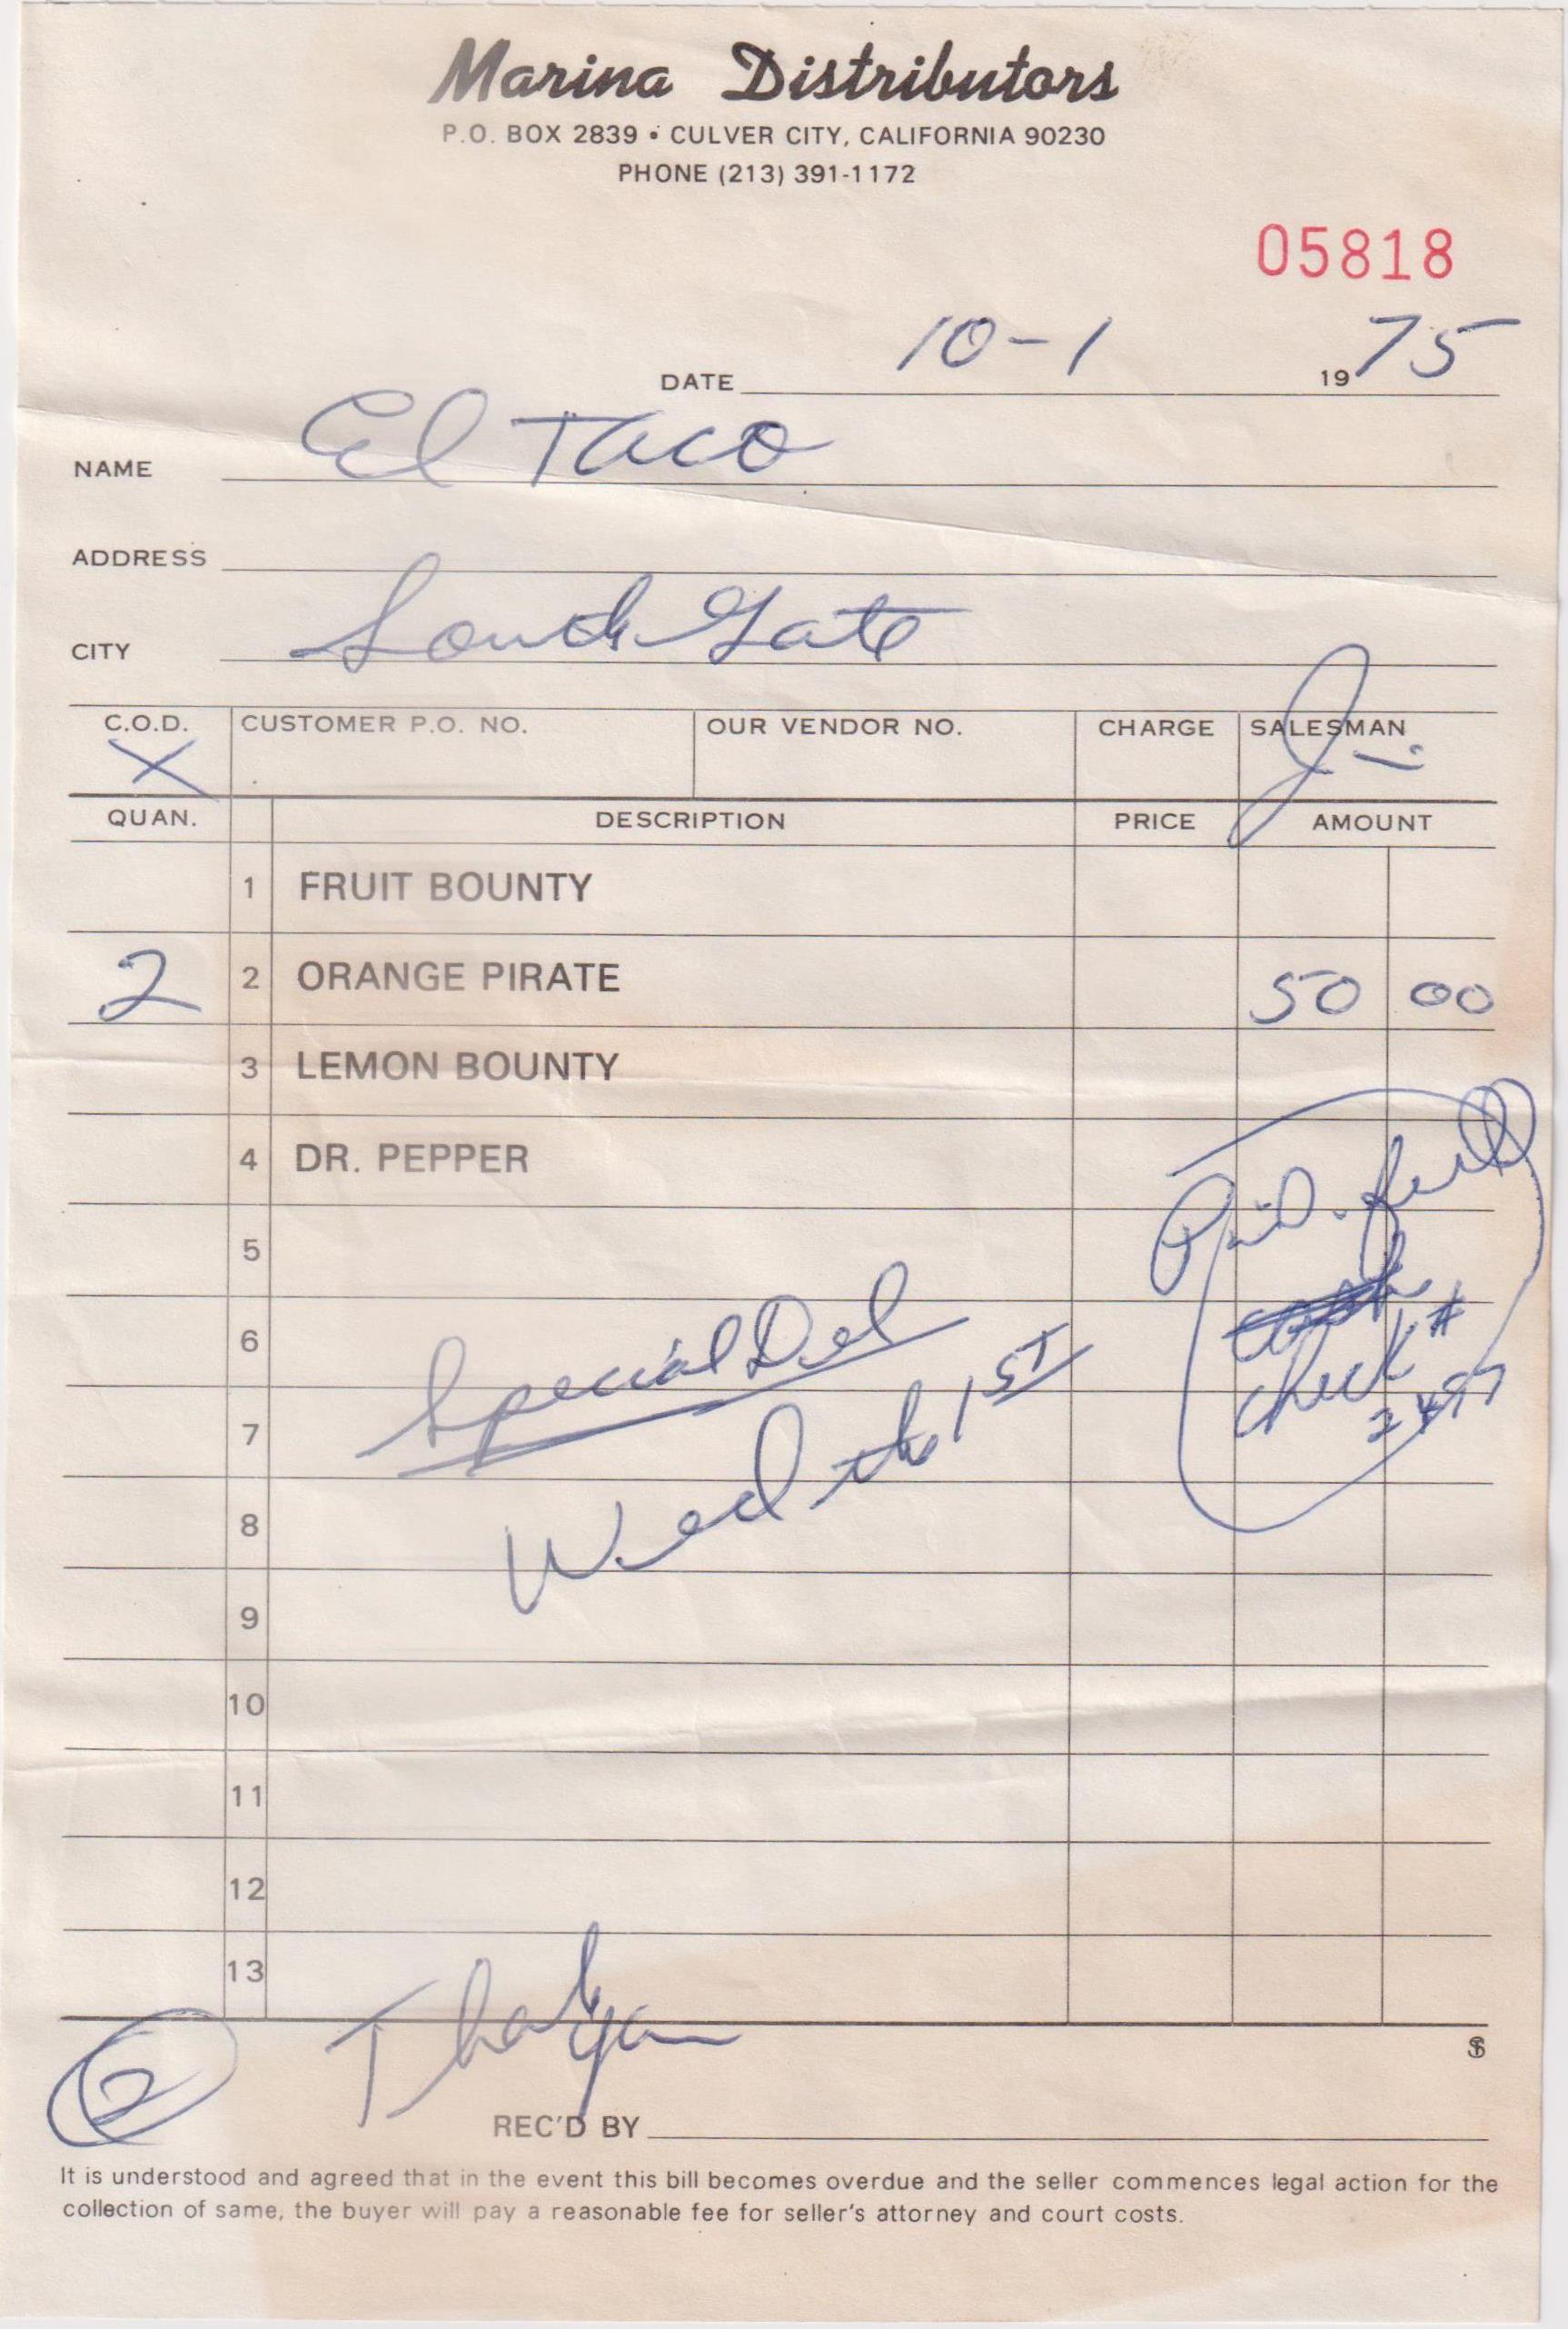 Marina Distributors
P.O. BOX 2839 • CULVER CITY, CALIFORNIA 90230
PHONE (213) 391-1172
05818
DATE 10-1 1975
NAME El Taco
ADDRESS
CITY South Gate
C.O.D. CUSTOMER P.O. NO. OUR VENDOR NO. CHARGE SALESMAN
X Jim
QUAN. DESCRIPTION PRICE AMOUNT
1 FRUIT BOUNTY
2 2 ORANGE PIRATE 50 00
3 LEMON BOUNTY
4 DR. PEPPER
Paid. full
5
cash
6 Special Del
check #
2497
7 Wed the 1ST
8
9
10
11
12
13
Thank you
2
REC'D BY
It is understood and agreed that in the event this bill becomes overdue and the seller commences legal action for the
collection of same, the buyer will pay a reasonable fee for seller's attorney and court costs.